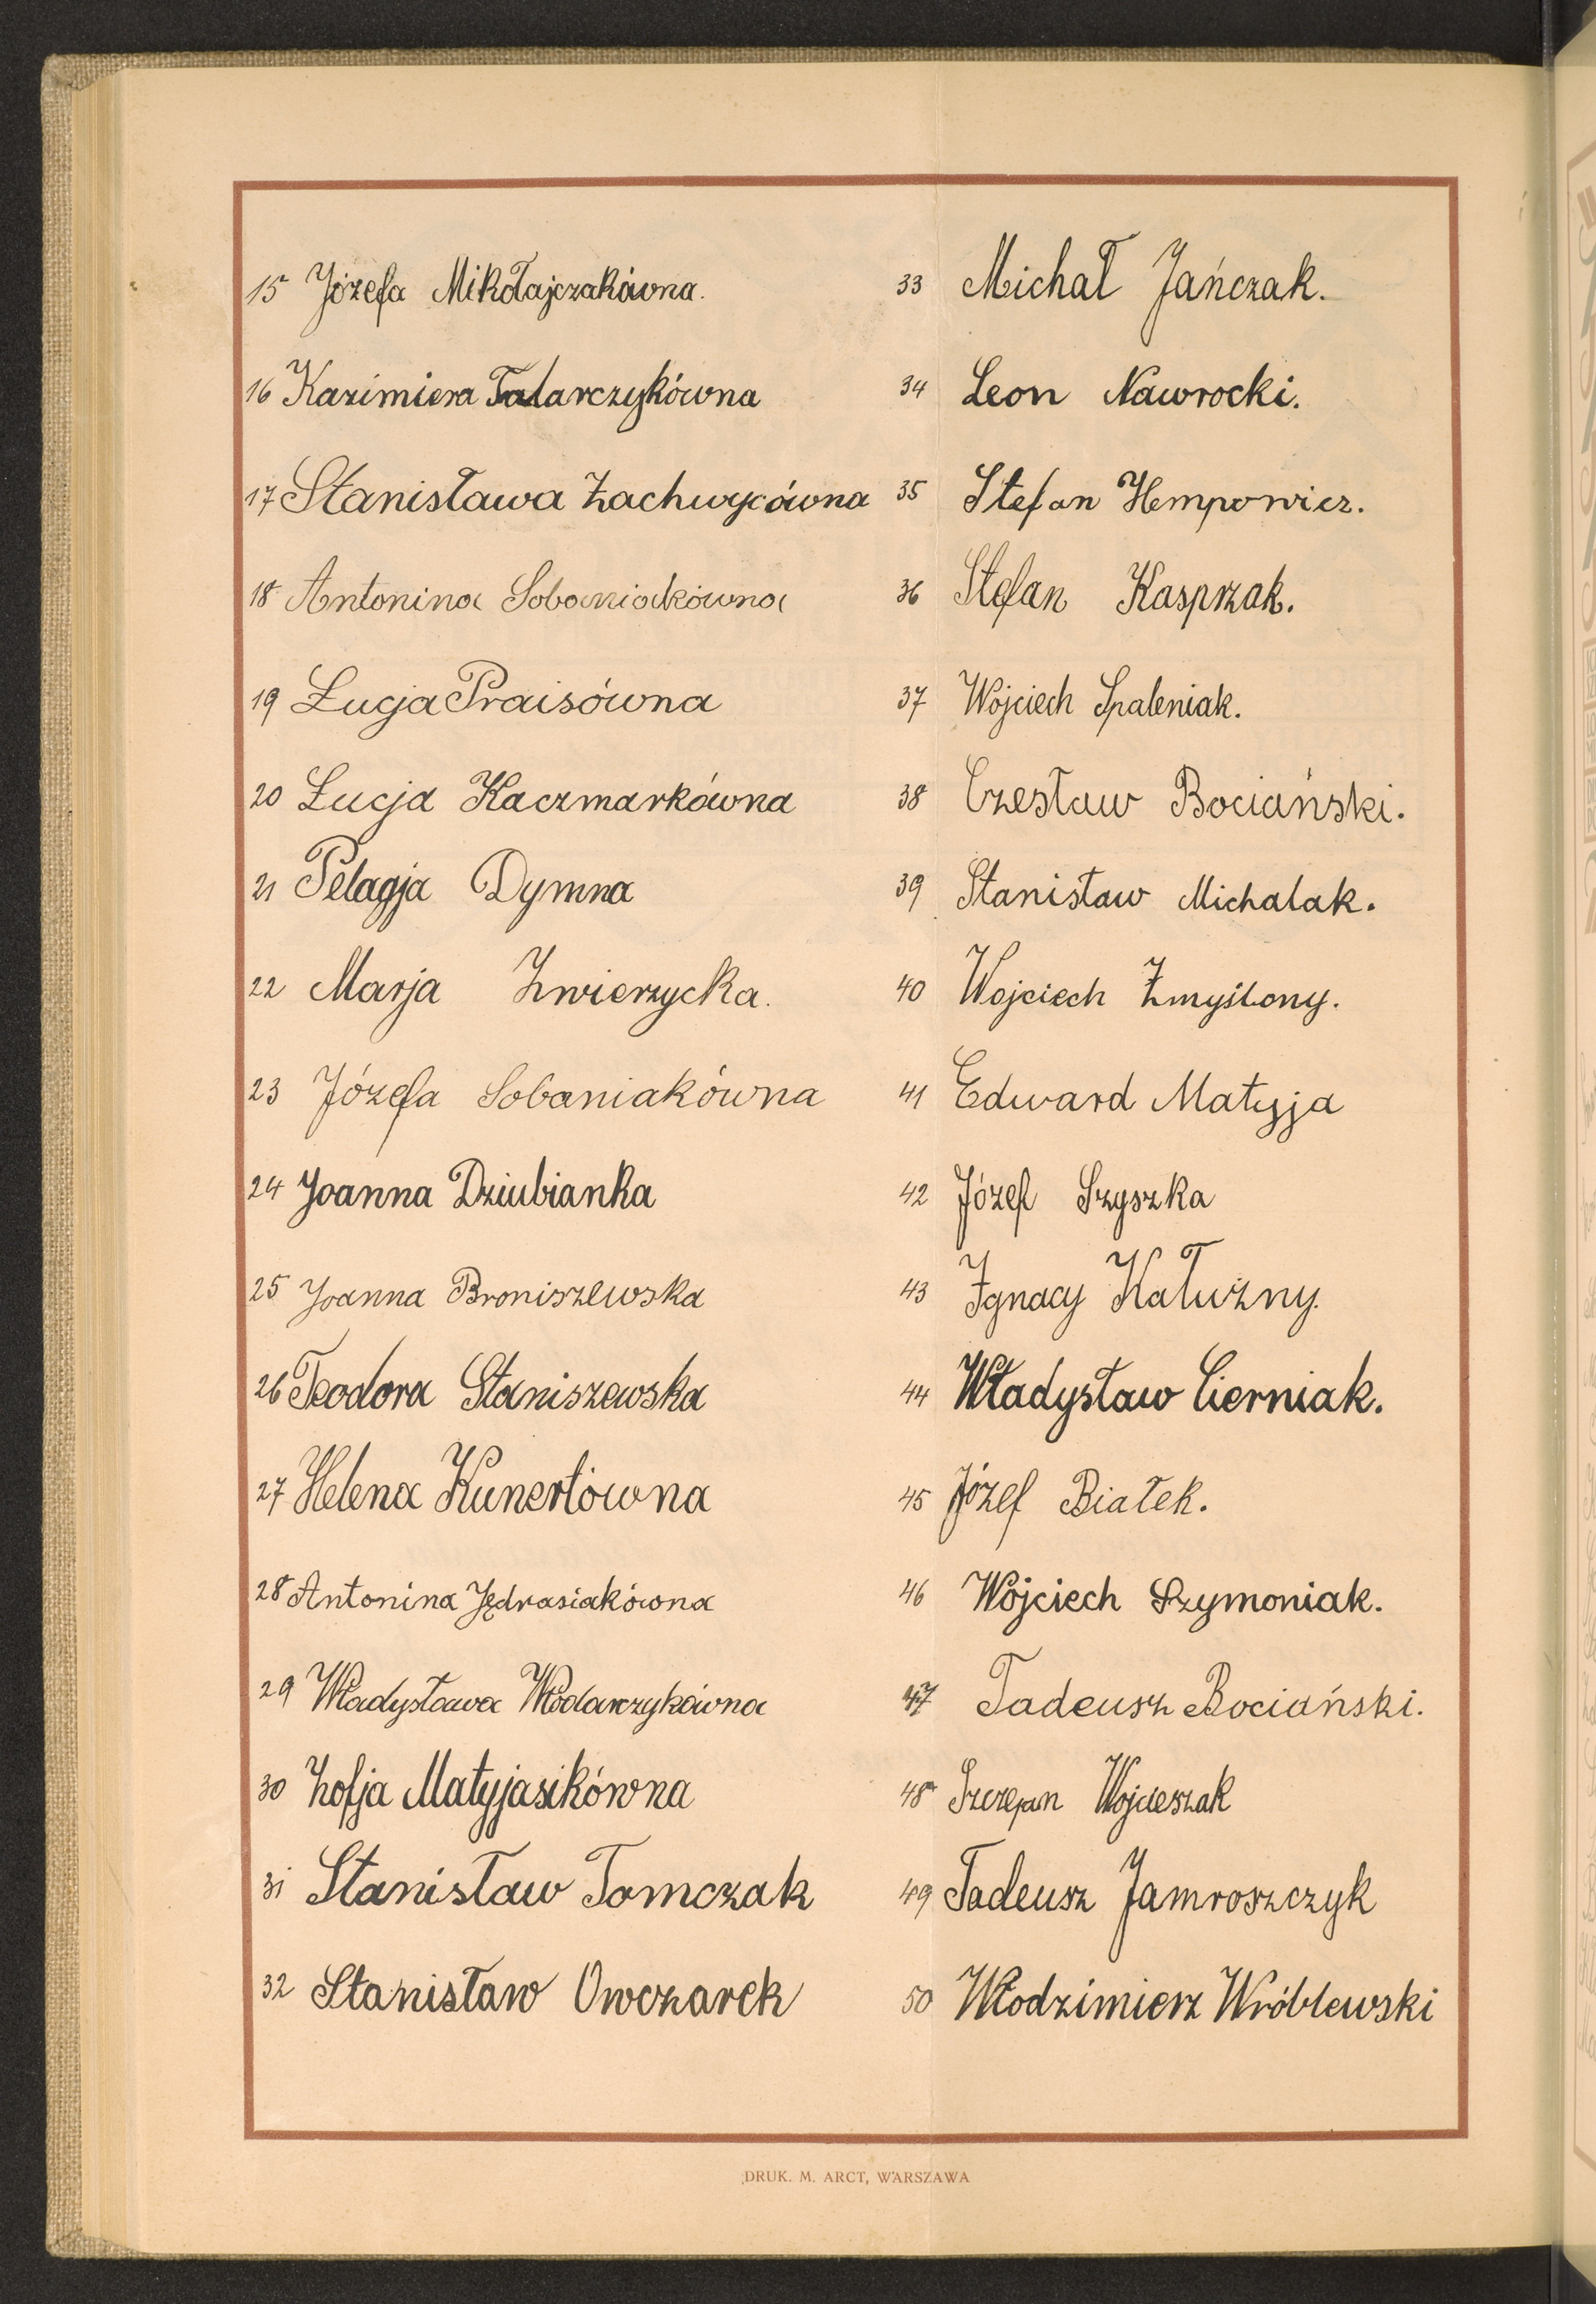 15 Józefa Mikołajczakówna.
16 Kazimiera Talarczykówna
17 Stanisława Zachwycówna
18 Antonina Sobaniakówna
19 Łucja Praisówna
20 Łucja Kaczmarkówna
21 Pelagja Dymna
22 Marja Zwierzycka.
23 Józefa Sobaniakówna
24 Joanna Dziubianka
25 Joanna Broniszewska
26 Teodora Staniszewska
27 Helena Kunertówna
28 Antonina Jędrasiakówna
29 Władysława Włodarczykówna
30 Zofja Matyjasikówna
31 Stanisław Tomczak
32 Stanisław Owczarek
33 Michał Jańczak.
34 Leon Nawrocki.
35 Stefan Hempowicz.
36 Stefan Kasprzak.
37 Wojciech Spaleniak.
38 Czesław Bociański.
39 Stanisław Michalak.
40 Wojciech Zmyślony.
41 Edward Matyja
42 Józef Szyszka
43 Ignacy Kałużny.
44 Władysław Cierniak.
45 Józef Białek.
46 Wojciech Szymoniak.
47 Tadeusz Bociański.
48 Szczepan Wojcieszak
49 Tadeusz Jamroszczyk
50 Włodzimierz Wróblewski
DRUK. M. ARCT, WARSZAWA